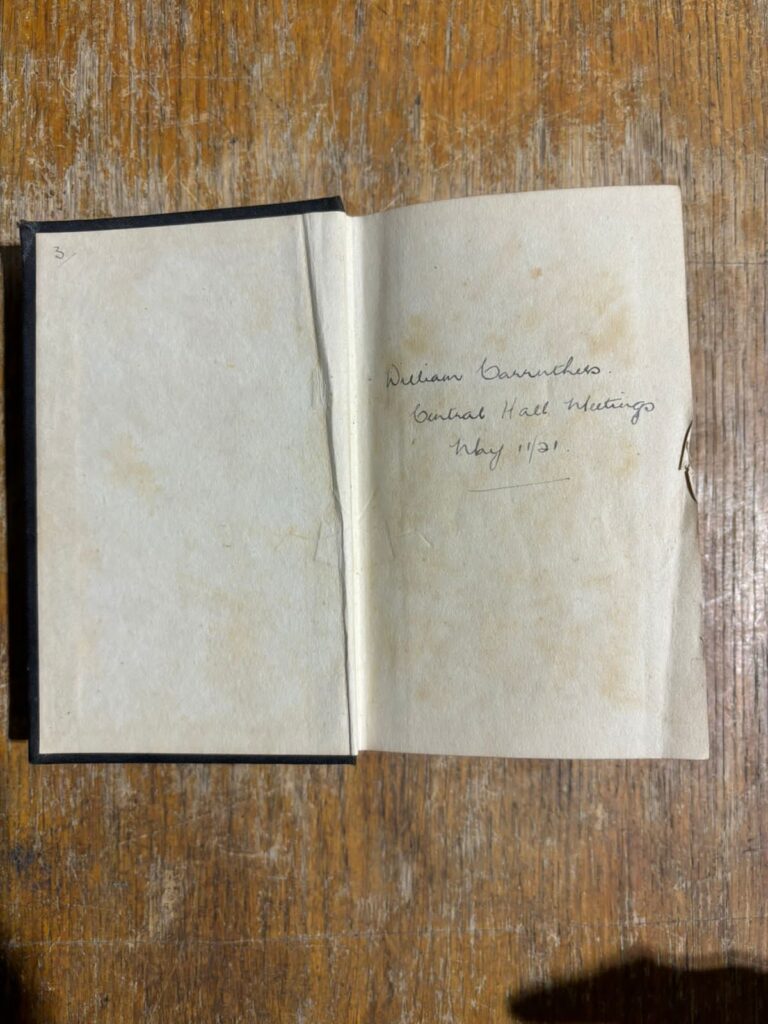 3/
William Carruthers.
Central Hall Meetings
May 11/21.